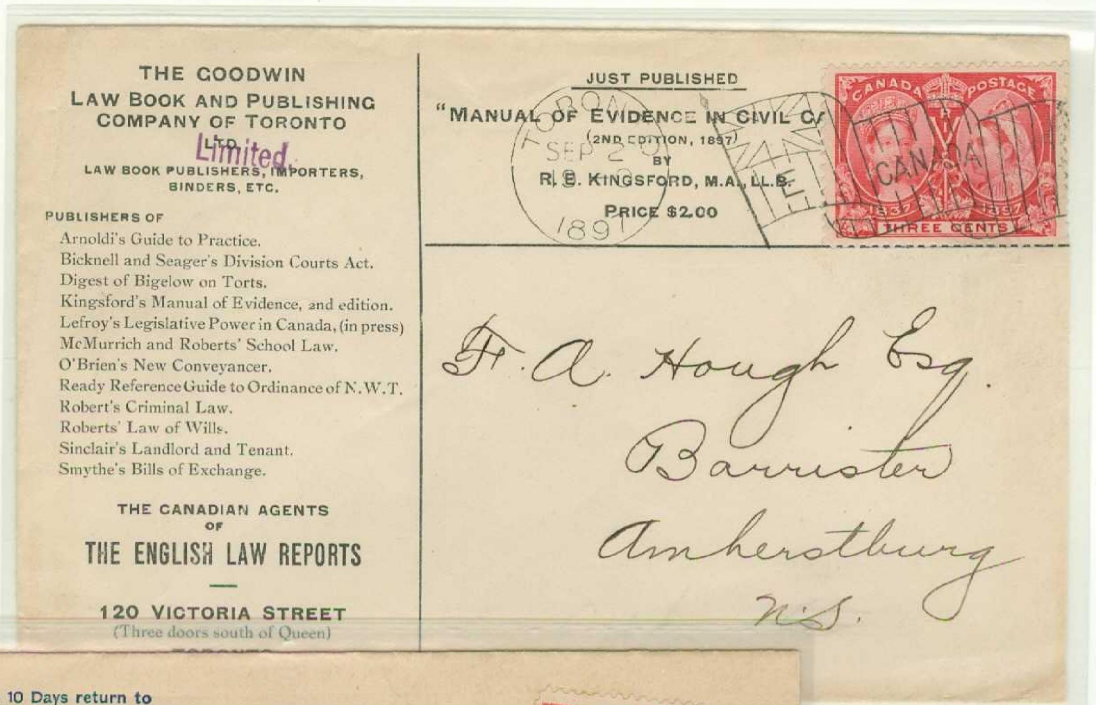 THE GOODWIN
LAW BOOK AND PUBLISHING
COMPANY OF TORONTO
LTD.
Limited.
LAW BOOK PUBLISHERS, IMPORTERS,
BINDERS, ETC.
PUBLISHERS OF
Arnoldi's Guide to Practice.
Bicknell and Seager's Division Courts Act.
Digest of Bigelow on Torts.
Kingsford's Manual of Evidence, 2nd edition.
Lefroy's Legislative Power in Canada, (in press)
McMurrich and Roberts' School Law.
O'Brien's New Conveyancer.
Ready Reference Guide to Ordinance of N.W.T.
Robert's Criminal Law.
Roberts' Law of Wills.
Sinclair's Landlord and Tenant.
Smythe's Bills of Exchange.
THE CANADIAN AGENTS
OF
THE ENGLISH LAW REPORTS
120 VICTORIA STREET
(Three doors south of Queen)
JUST PUBLISHED
"MANUAL OF EVIDENCE IN CIVIL
(2ND EDITION, 1897)
BY
R. E. KINGSFORD, M.A., LL.B.
PRICE $2.00
SEP 2
189
CANADA POSTAGE
CANADA
1837 1897
THREE CENTS
F. A. Hough Esq.
Barrister
Amherstburg
N.S.
10 Days return to